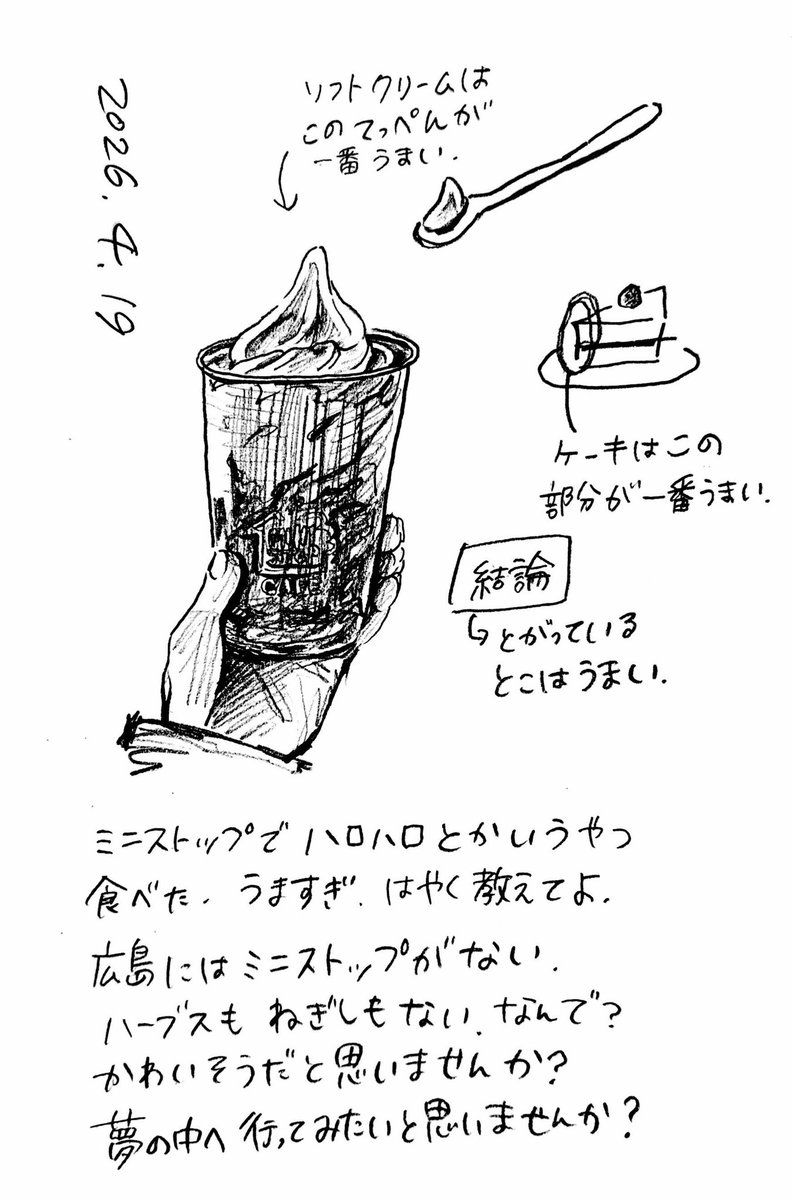 2026.4.19
ソフトクリームは
このてっぺんが
一番うまい.
ケーキはこの
部分が一番うまい.
結論
↳とがっている
とこはうまい.
MINI
STOP
CAFE
ミニストップで ハロハロとかいうやつ
食べた. うますぎ. はやく教えてよ.
広島にはミニストップがない.
ハーブスも ねぎしもない. なんで?
かわいそうだと思いませんか?
夢の中へ 行ってみたいと思いませんか?